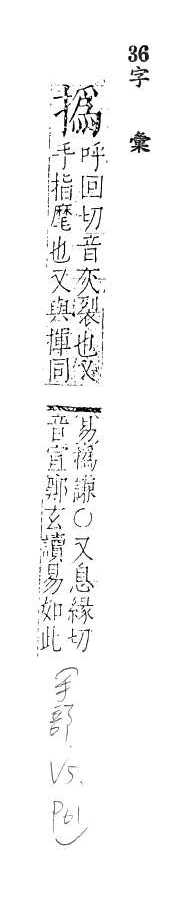 36字 彙
撝
呼回切音灰裂也又
手指麾也又與揮同
易撝謙○又息緣切
音宣鄭玄讀易如此
(手部. V5. P61)